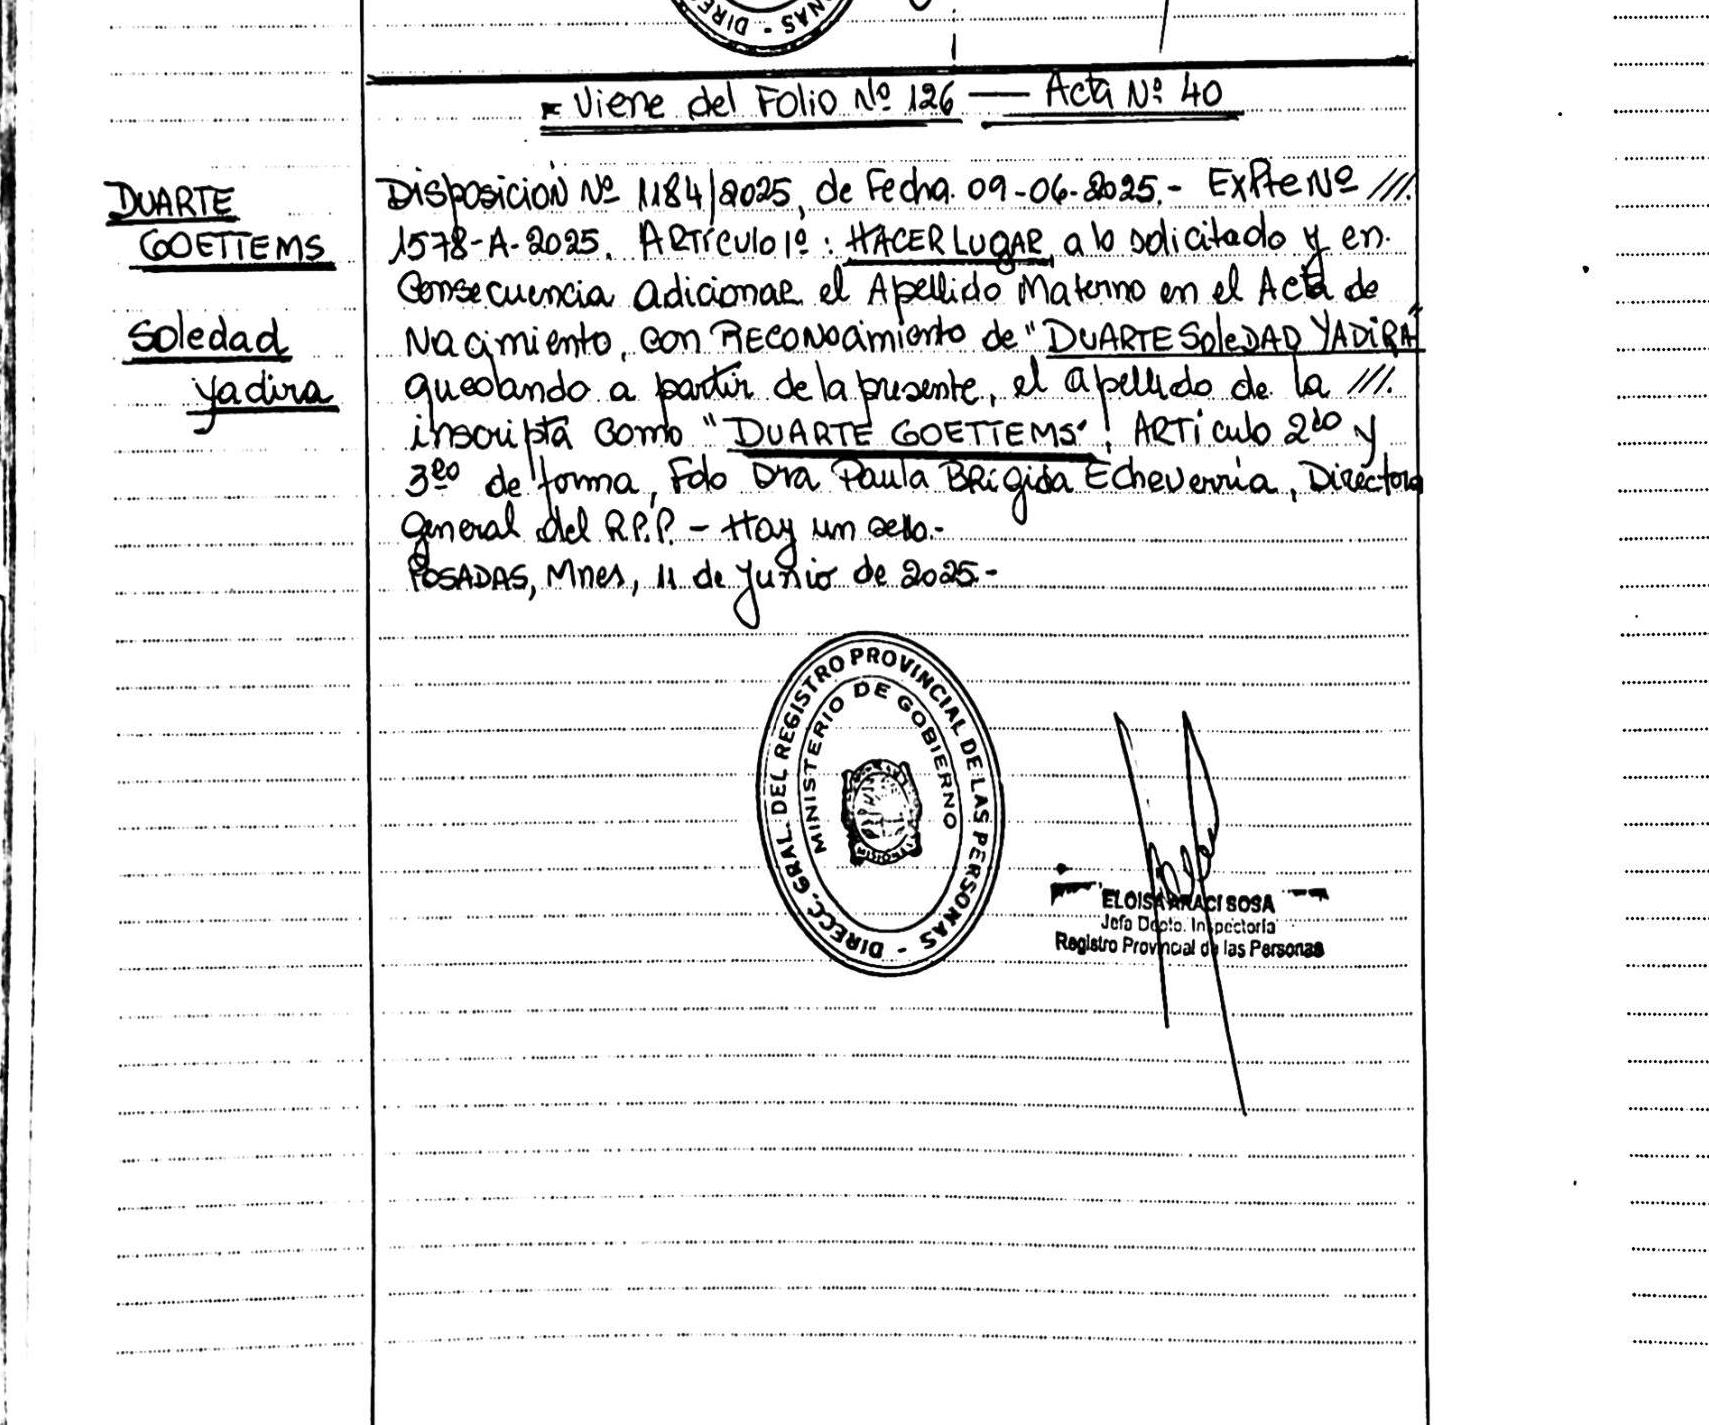 DIREC
ONAS -
* Viene del Folio Nº 126 — Acta Nº 40
DUARTE
GOETTEMS
Soledad
Yadira
Disposición Nº 1184/2025, de Fecha 09-06-2025.- ExPte Nº ///.
1578-A-2025. ARTículo 1º: HACER LUGAR a lo solicitado y en
Consecuencia adicionar el Apellido Materno en el Acta de
Nacimiento, con RECONOcimiento de "DUARTE SoleDAD YADIRA"
quedando a partir de la presente, el apellido de la ///.
inscripta como "DUARTE GOETTEMS". ARTículo 2do y
3ro de forma, Fdo Dra Paula BRígida Echeverría, Directora
General del R.P.P. - Hay un sello.-
POSADAS, Mnes, 11 de Junio de 2025.-
DIRECC. GRAL. DEL REGISTRO PROVINCIAL DE LAS PERSONAS -
MINISTERIO DE GOBIERNO
MISIONES
ELOISA ARACI SOSA
Jefa Depto. Inspectoria
Registro Provincial de las Personas